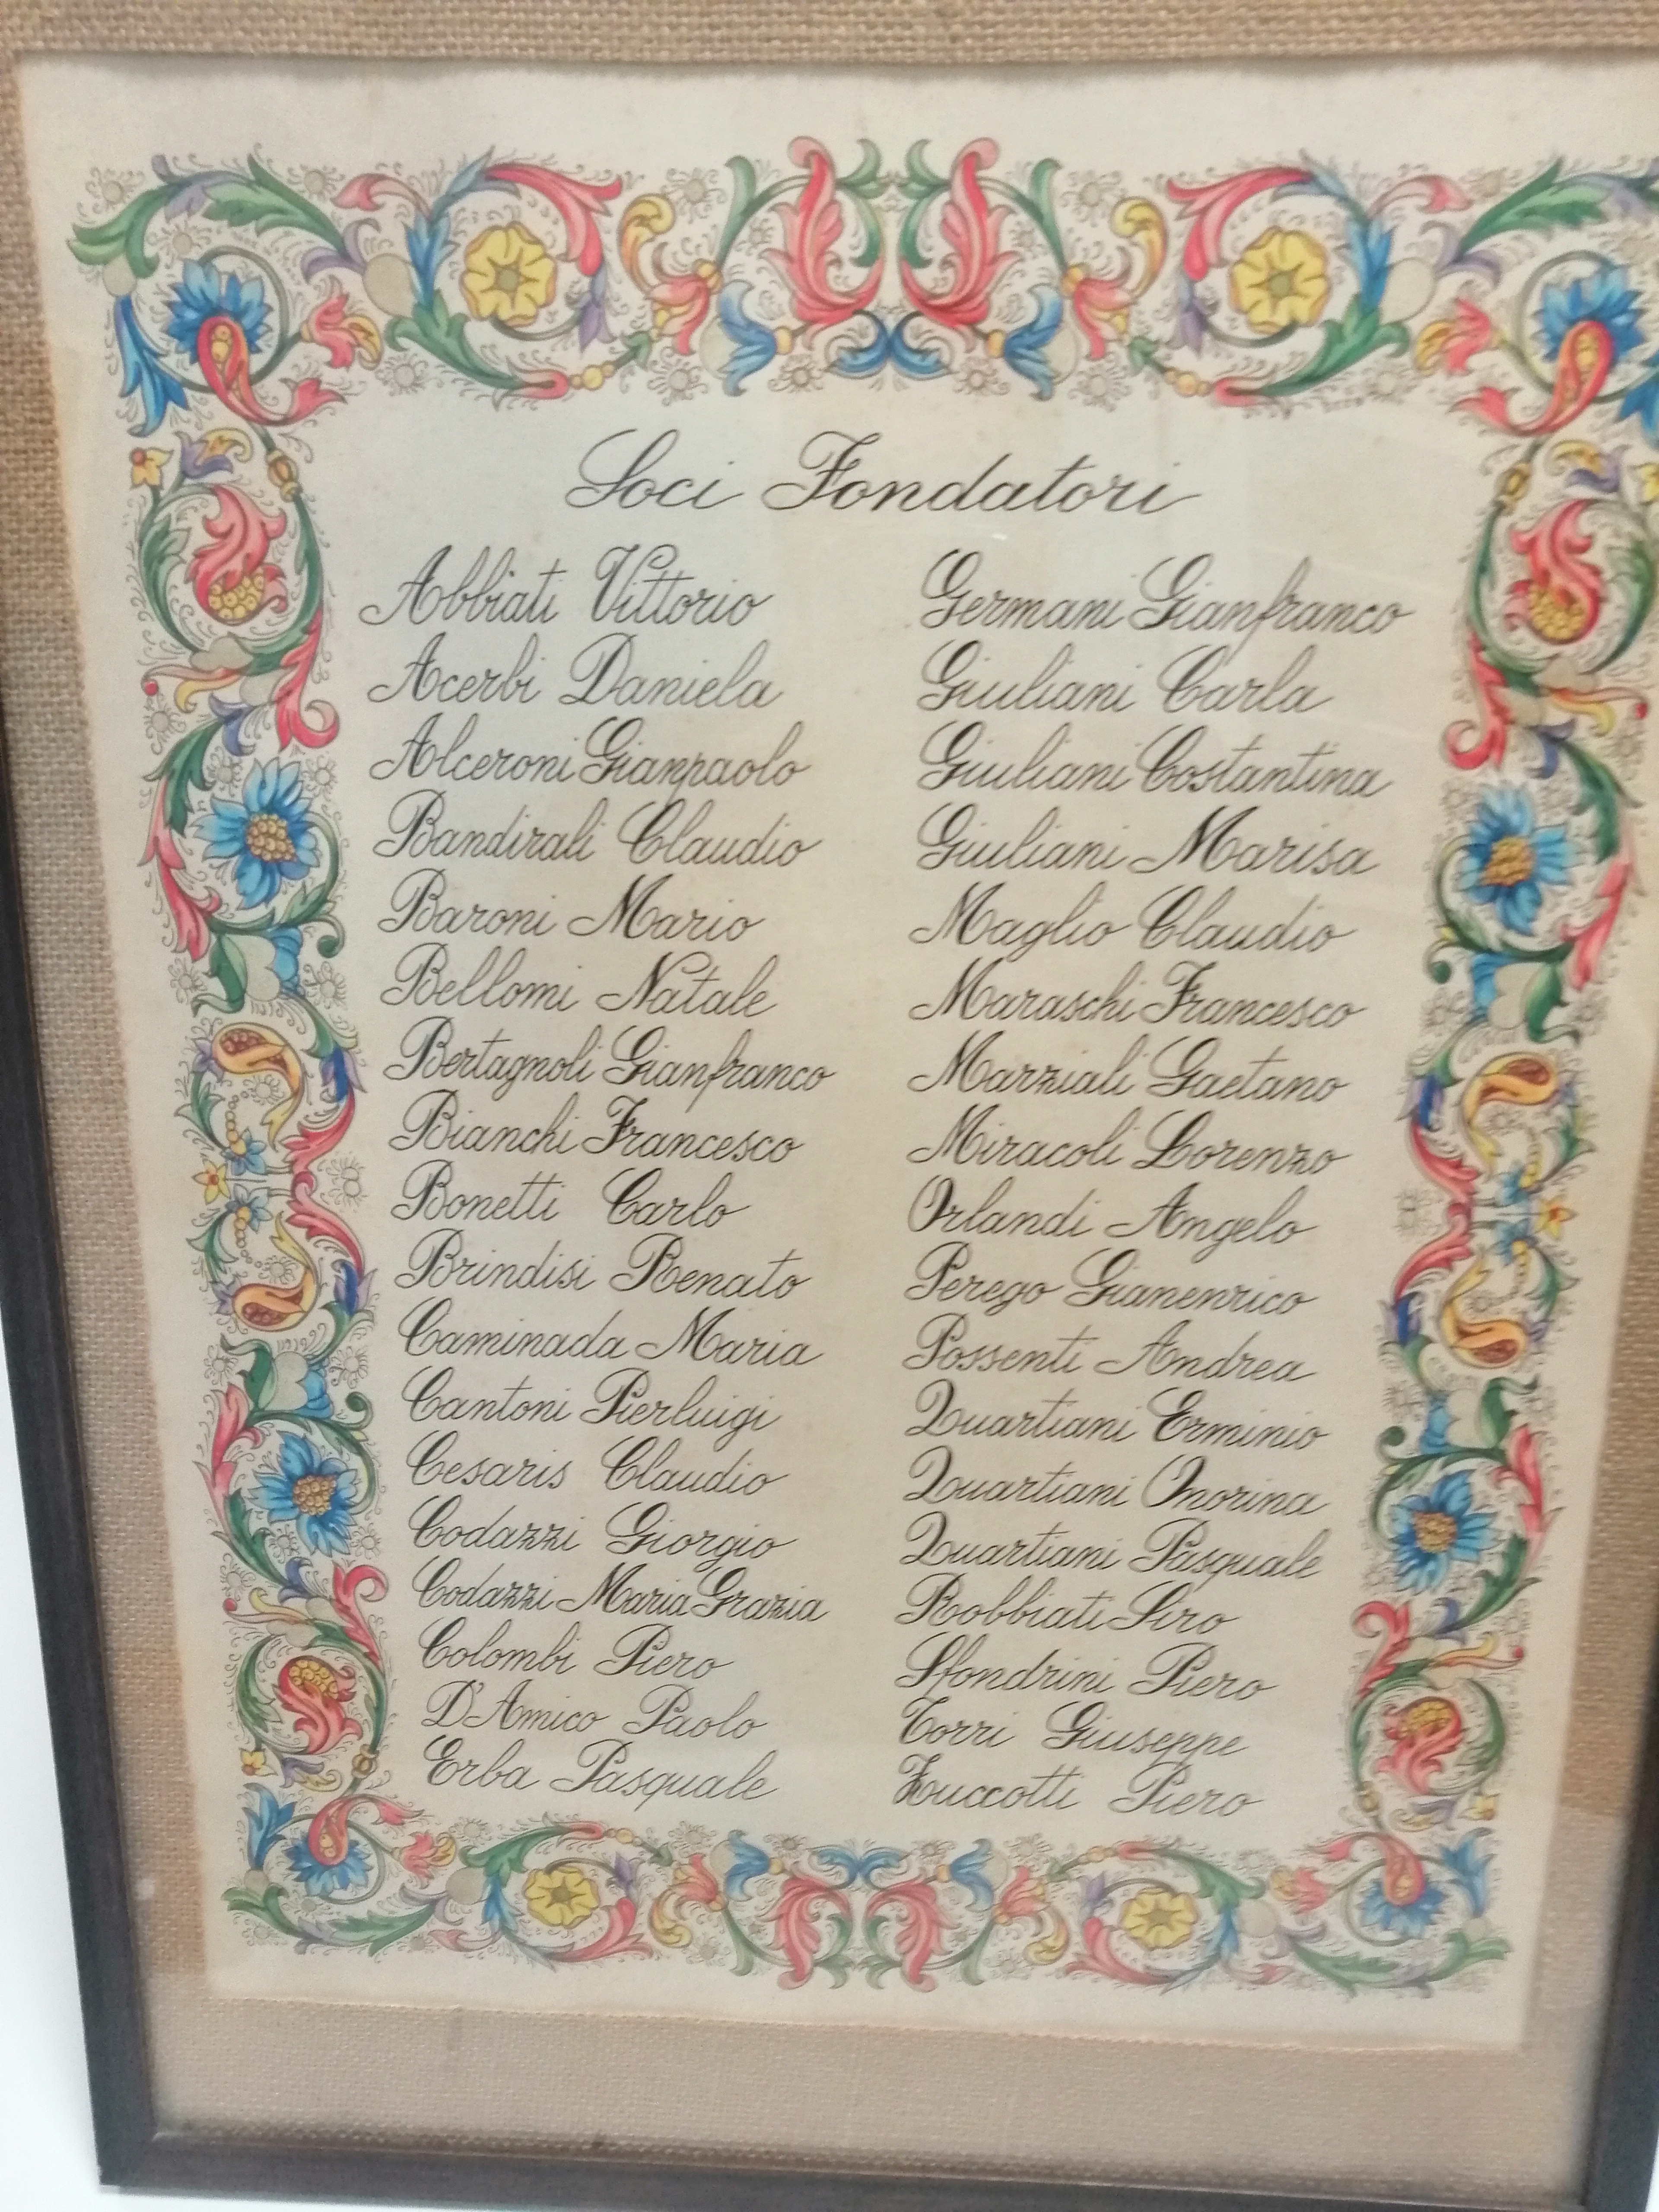 Soci Fondatori
Abbiati Vittorio
Acerbi Daniela
Alceroni Gianpaolo
Bandirali Claudio
Baroni Mario
Bellomi Natale
Bertagnoli Gianfranco
Bianchi Francesco
Bonetti Carlo
Brindisi Renato
Caminada Maria
Cantoni Pierluigi
Cesaris Claudio
Codazzi Giorgio
Codazzi Maria Grazia
Colombi Piero
D'Amico Paolo
Erba Pasquale
Germani Gianfranco
Giuliani Carla
Giuliani Costantina
Giuliani Marisa
Maglio Claudio
Maraschi Francesco
Marziali Gaetano
Miracoli Lorenzo
Orlandi Angelo
Perego Gianenrico
Possenti Andrea
Quartiani Erminio
Quartiani Onorina
Quartiani Pasquale
Robbiati Siro
Sfondrini Piero
Torri Giuseppe
Zuccotti Piero